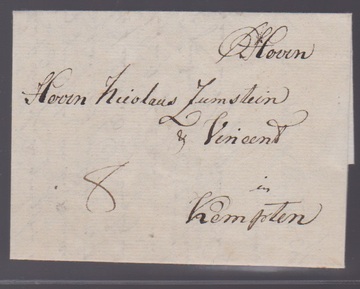 Herrn
Herrn Nicolaus Zumstein
& Vincent
in
8
Kempten